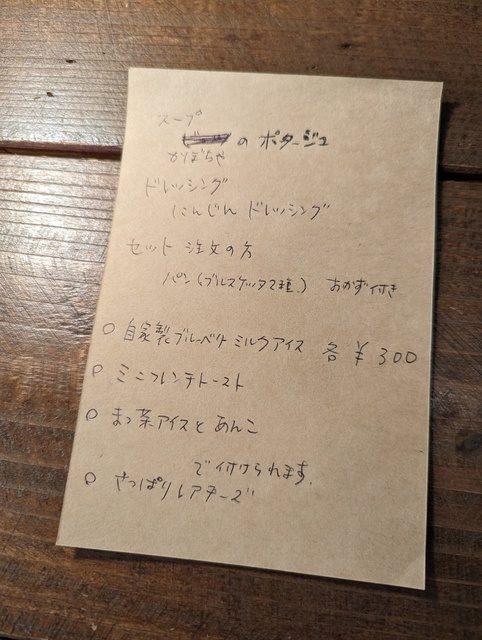 スープ
のポタージュ
かぼちゃ
ドレッシング
にんじんドレッシング
セット注文の方
パン(ブルスケッタ2種) おかず付き
○ 自家製ブルーベリーミルクアイス 各¥300
○ ミニフレンチトースト
○ まっ茶アイスとあんこ
で付けられます。
○ さっぱりレアチーズ